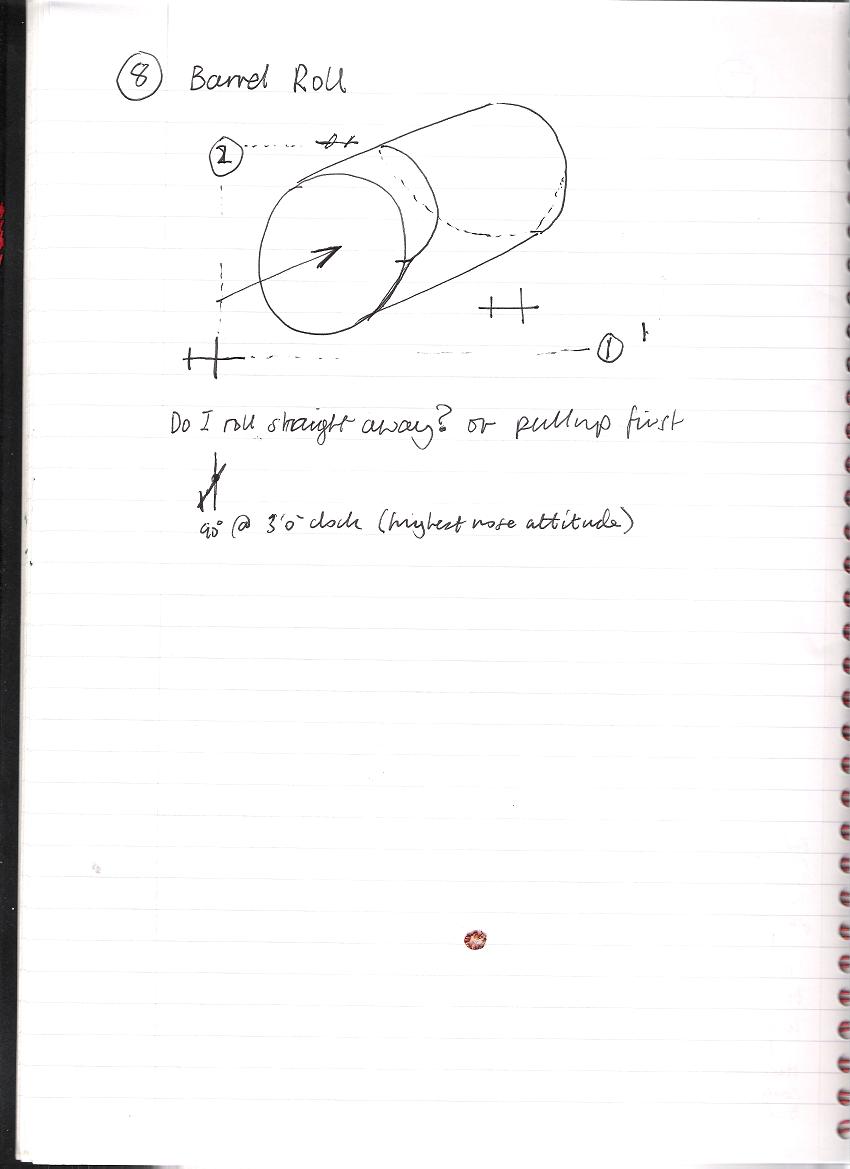 8 Barrel Roll
2
1
Do I roll straight away? or pull up first
90° @ 3'o'clock (highest nose attitude)